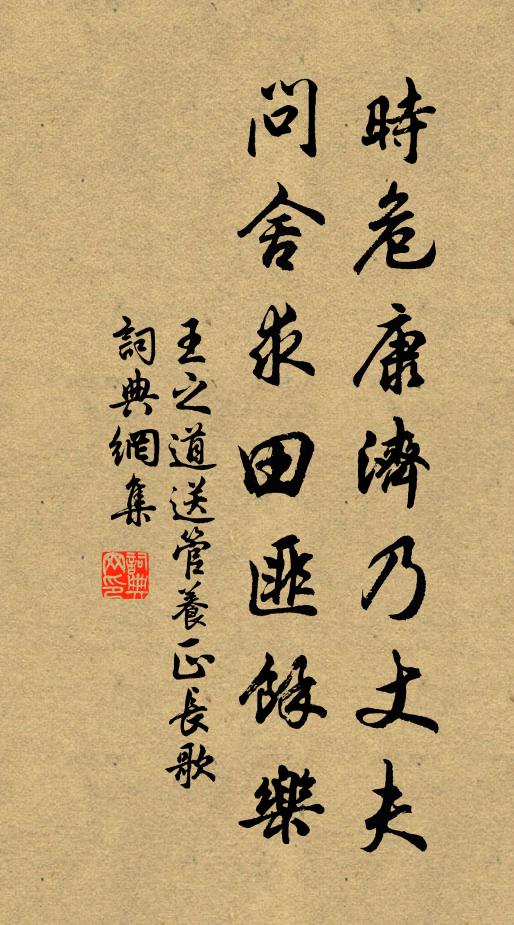 時危康濟乃丈夫
問舍求田匪餘樂
王之道送管養正長歌
詞典網集
詞典網印